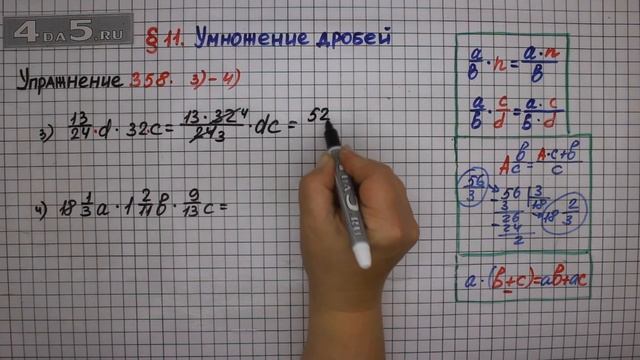 4DA5.RU
§ 11. Умножение дробей
Упражнение 358. 3)-4)
3) 13/24 · d · 32c = 13 · 32 4/24 3 · dc = 52
4) 18 1/3 a · 1 2/11 b · 9/13 c =
a/b · n = a · n/b
a/b · c/d = a · c/b · d
A b/c = A · c + b/c
56/3
56 | 3
- 3 18
26
- 24
2
18 2/3
a · (b + c) = ab + ac